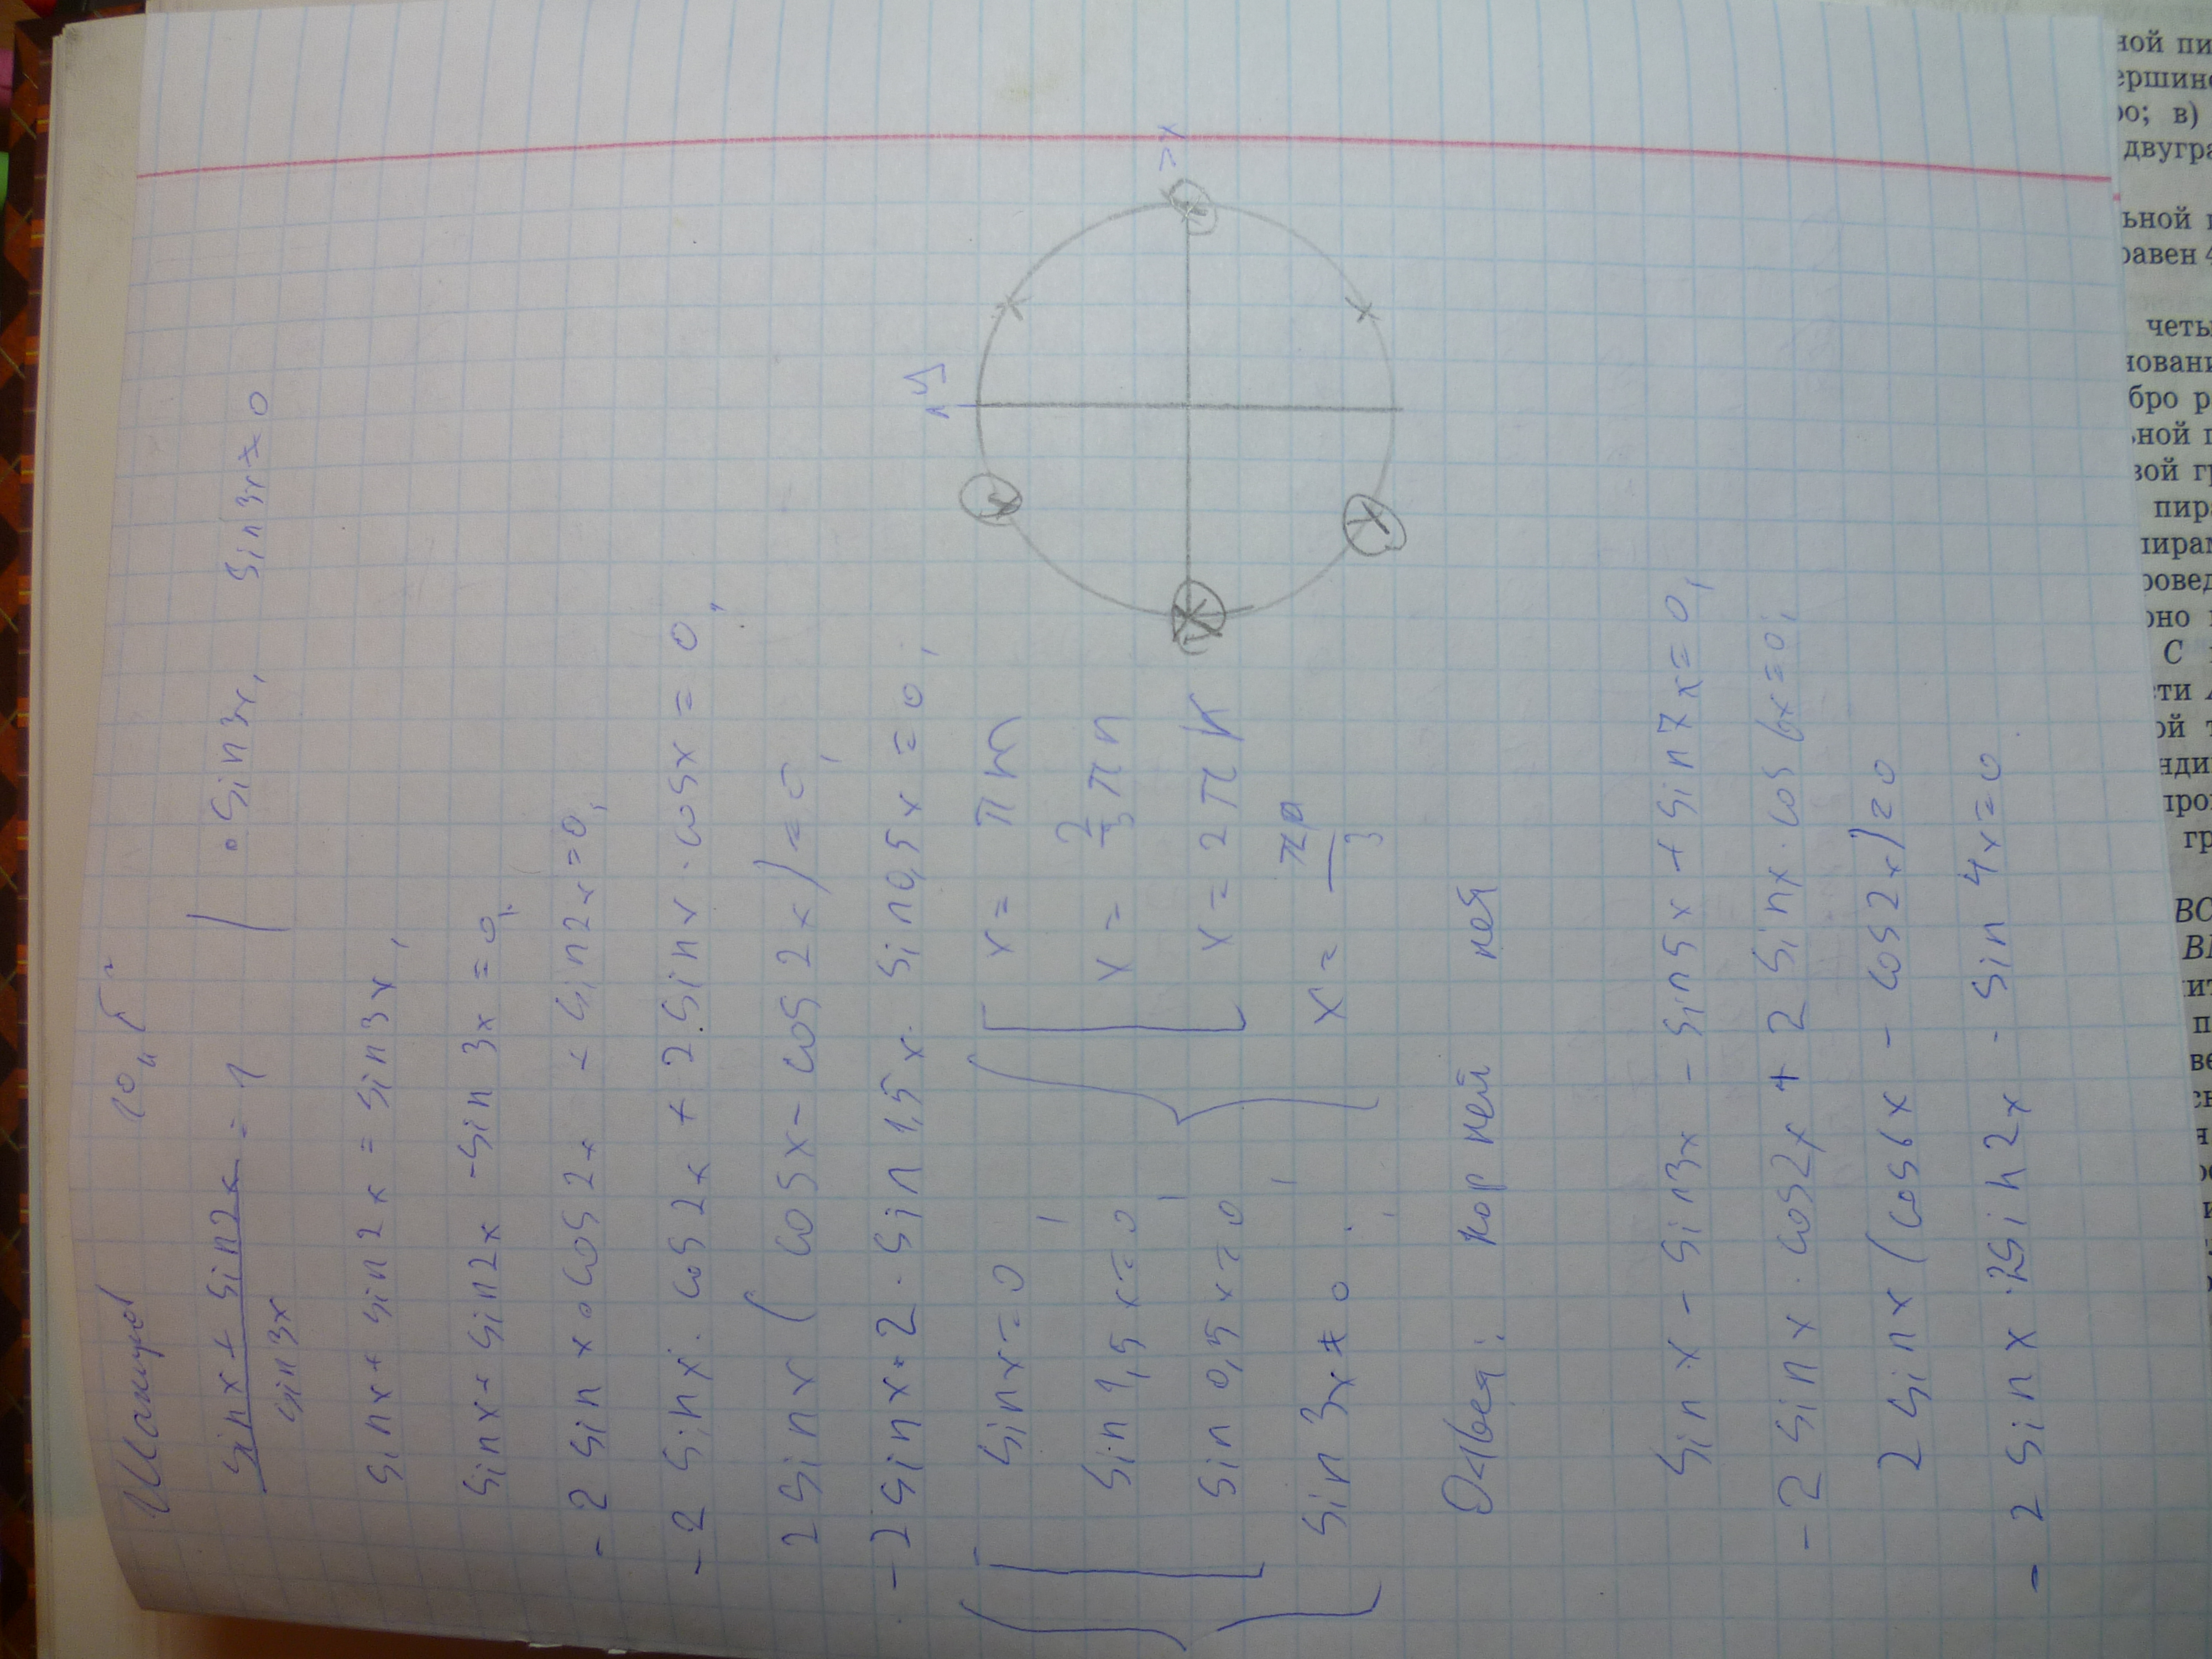 10 "Г"
sin x + sin 2x / sin 3x = 1 | · sin 3x, sin 3x ≠ 0
sin x + sin 2x = sin 3x,
sin x + sin 2x - sin 3x = 0,
- 2 sin x · cos 2x + sin 2x = 0,
- 2 sin x · cos 2x + 2 · sin x · cos x = 0,
2 sin x ( cos x - cos 2x ) = 0,
- 2 sin x · 2 · sin 1,5x · sin 0,5x = 0,
sin x = 0, x = πm
sin 1,5x = 0, x = 2/3 πn
sin 0,5x = 0, x = 2πk
sin 3x ≠ 0. x =
πp
3
Ответ: корней нет
y
x
sin x - sin 3x - sin 5x + sin 7x = 0,
- 2 sin x · cos 2x + 2 sin x · cos 6x = 0,
2 sin x ( cos 6x - cos 2x ) = 0
- 2 sin x · 2 sin 2x · sin 4x = 0.
ной пи
ершино
ро; в)
двугра
ьной п
равен 4
четы
бро р
вой гр
пира
С
ВС